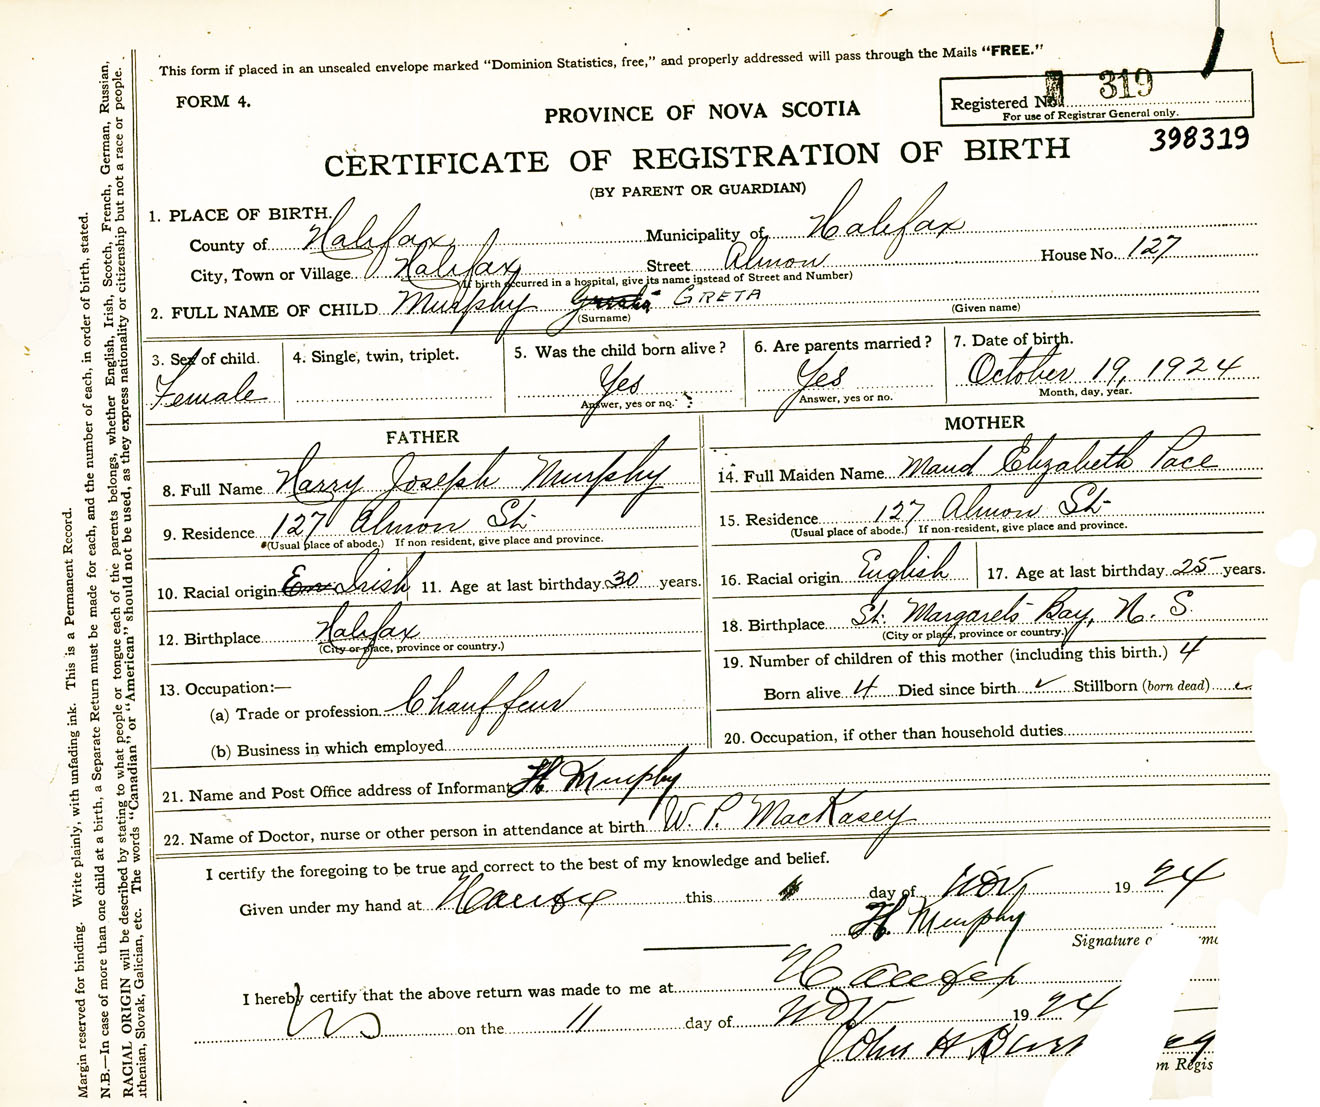 This form if placed in an unsealed envelope marked "Dominion Statistics, free," and properly addressed will pass through the Mails "FREE."
FORM 4.
PROVINCE OF NOVA SCOTIA
Registered No. 319
For use of Registrar General only.
398319
CERTIFICATE OF REGISTRATION OF BIRTH
(BY PARENT OR GUARDIAN)
1. PLACE OF BIRTH.
County of Halifax Municipality of Halifax
City, Town or Village Halifax Street Almon House No. 127
(If birth occurred in a hospital, give its name instead of Street and Number)
2. FULL NAME OF CHILD Murphy GRETA
(Surname) (Given name)
3. Sex of child. Female
4. Single, twin, triplet.
5. Was the child born alive? Yes
Answer, yes or no.
6. Are parents married? Yes
Answer, yes or no.
7. Date of birth. October 19, 1924
Month, day, year.
FATHER
8. Full Name Harry Joseph Murphy
9. Residence 127 Almon St.
(Usual place of abode.) If non resident, give place and province.
10. Racial origin Irish 11. Age at last birthday 30 years.
12. Birthplace Halifax
(City or place, province or country.)
13. Occupation:—
(a) Trade or profession Chauffeur
(b) Business in which employed
MOTHER
14. Full Maiden Name Maud Elizabeth Pace
15. Residence 127 Almon St.
(Usual place of abode.) If non resident, give place and province.
16. Racial origin English 17. Age at last birthday 25 years.
18. Birthplace St. Margarets Bay, N. S.
(City or place, province or country.)
19. Number of children of this mother (including this birth.) 4
Born alive 4 Died since birth ✓ Stillborn (born dead) ✓
20. Occupation, if other than household duties
21. Name and Post Office address of Informant H Murphy
22. Name of Doctor, nurse or other person in attendance at birth W. P. MacKasey
I certify the foregoing to be true and correct to the best of my knowledge and belief.
Given under my hand at Halifax this day of Nov 1924
H. Murphy
Signature o
I hereby certify that the above return was made to me at Halifax
on the 11 day of Nov 1924
John H
n Regis
Margin reserved for binding. Write plainly, with unfading ink. This is a Permanent Record.
N.B.—In case of more than one child at a birth, a Separate Return must be made for each, and the number of each, in order of birth, stated.
RACIAL ORIGIN will be described by stating to what people or tongue each of the parents belongs, whether English, Irish, Scotch, French, German, Russian,
thenian, Slovak, Galician, etc. The words "Canadian" or "American" should not be used, as they express nationality or citizenship but not a race or people.